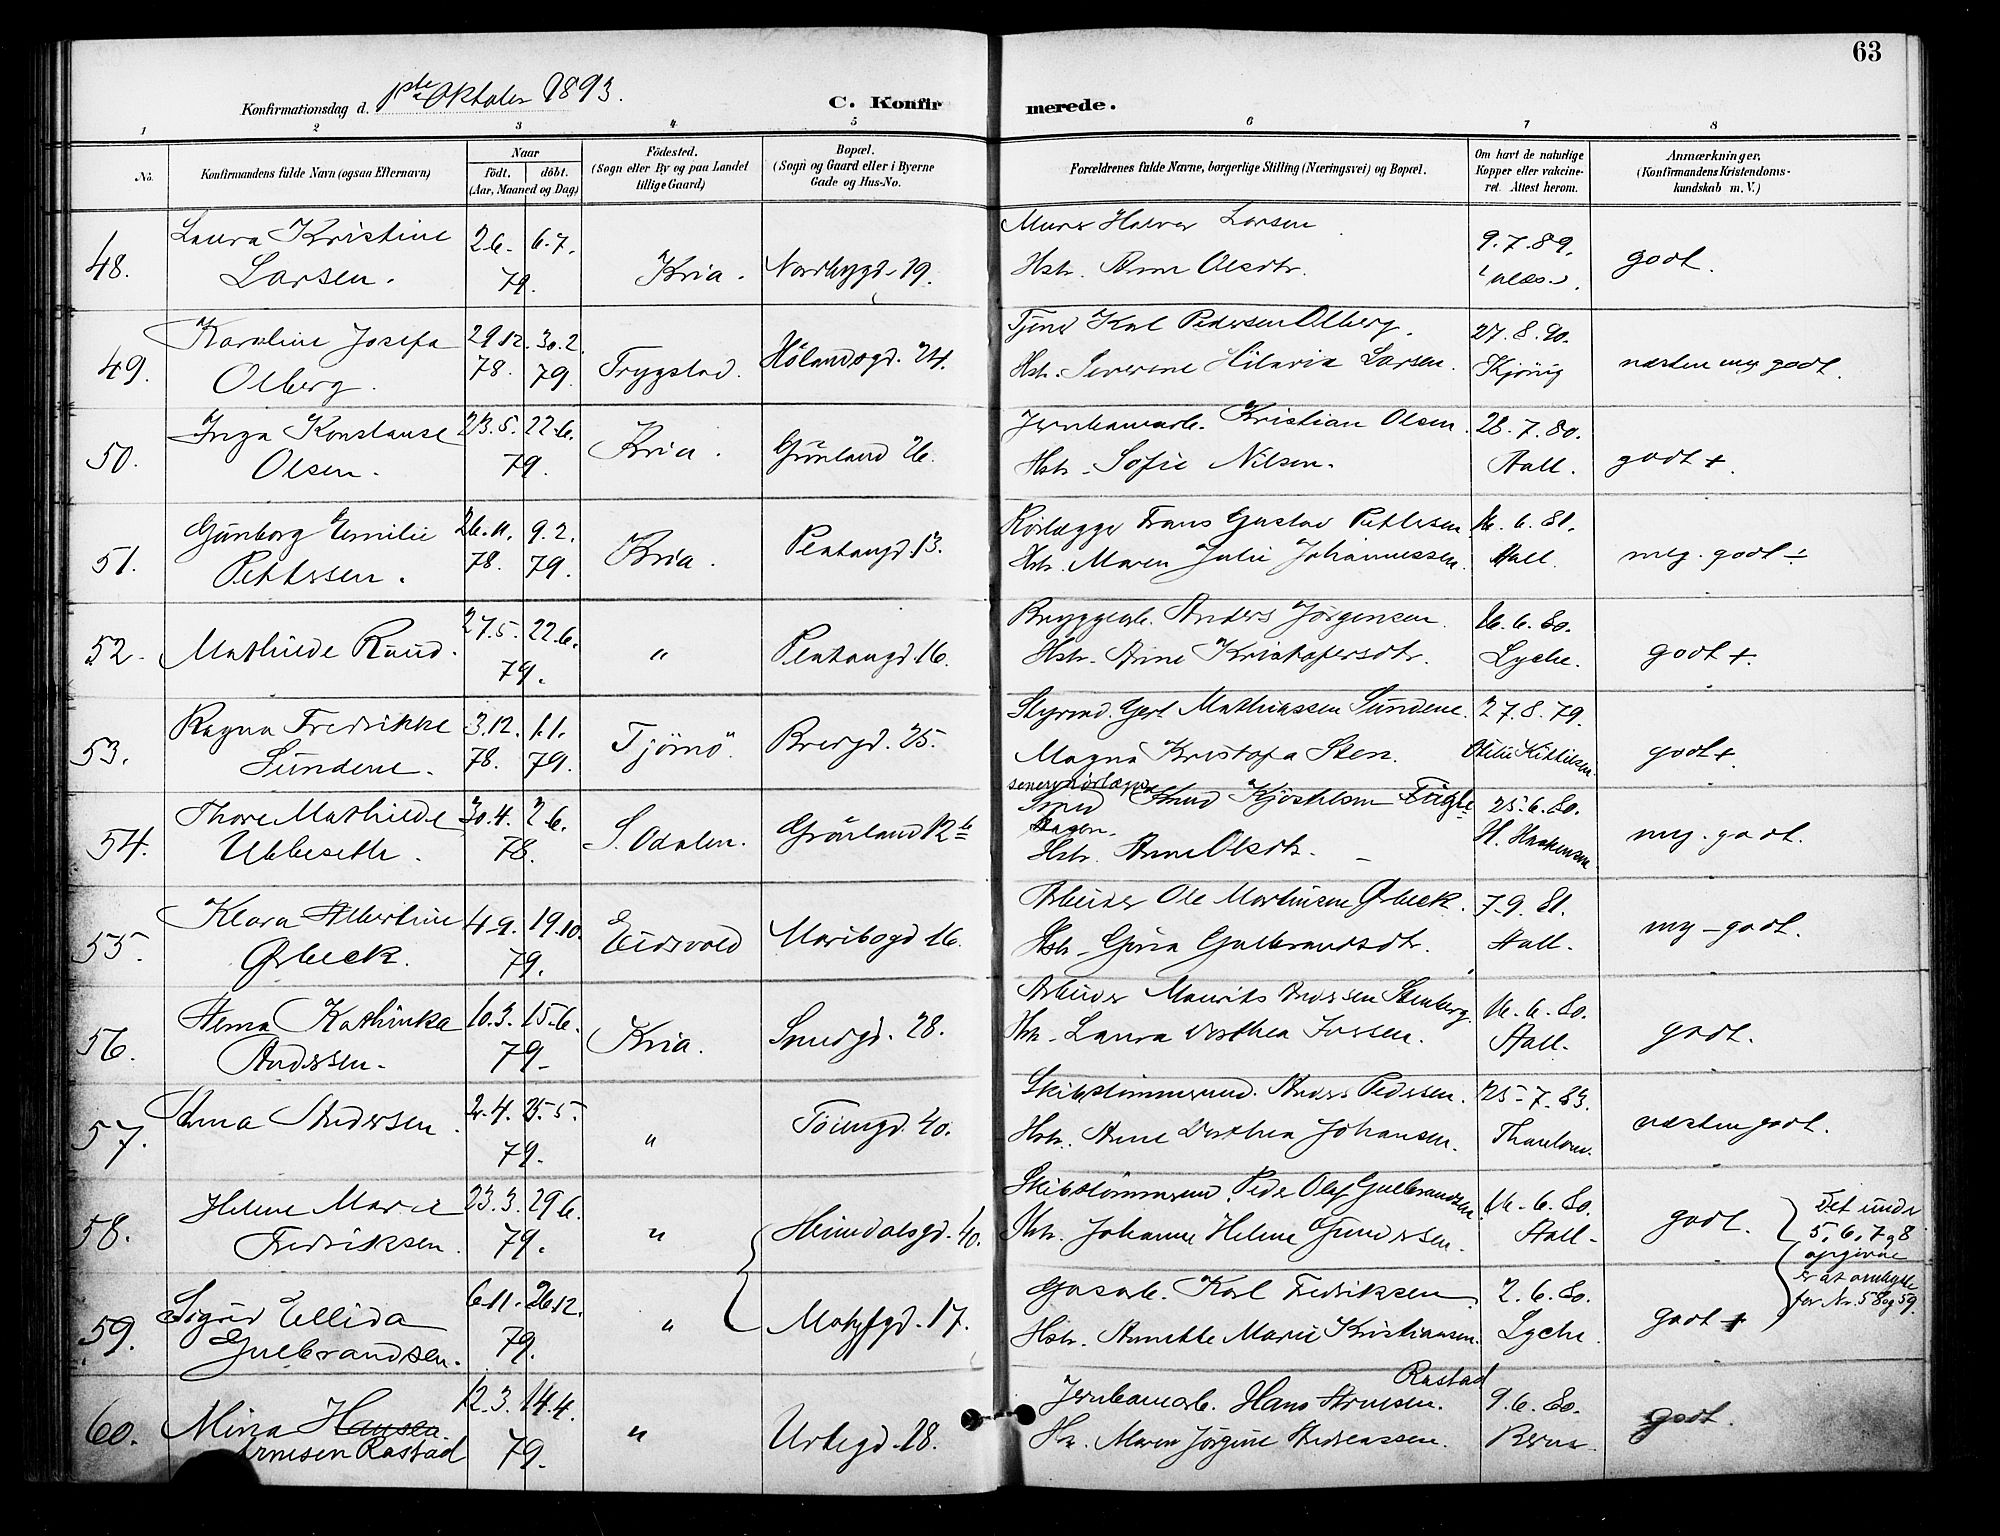 63
Konfirmationsdag d. 1ste Oktober 1893.
C. Konfirmerede.
1 2 3 4 5 6 7 8
No.
Konfirmandens fulde Navn (ogsaa Efternavn)
Naar
födt. döbt.
(Aar, Maaned og Dag)
Födested.
(Sogn eller By og paa Landet
tillige Gaard)
Bopæl.
(Sogn og Gaard eller i Byerne
Gade og Hus-No.
Forældrenes fulde Navne, borgerlige Stilling (Næringsvei) og Bopæl.
Om havt de naturlige
Kopper eller vakcine-
ret. Attest herom.
Anmærkninger,
(Konfirmandens Kristendoms-
kundskab m. V.)
48. Laura Kristine 26. 6.7. Kria. Nordbygd. 19. Murer Halvor Larsen 9.7.89. godt.
Larsen. 79. Hstr. Anne Olsdtr.
49. Karoline Josefa 29.12. 30.2. Trygstad. Hölandsgd. 24. Karl Pedersen Olberg. 27.8.90. næsten mg godt.
Olberg. 78. 79. Hstr. Severine Hilaria Larsen. Kjönig
50. Inga Konstanse 23.5. 22.6. Kria. Grönland 26. Jernbanearb. Kristian Olsen. 28.7.80. godt +.
Olsen. 79. Hstr. Sofie Nilsen. Aall.
51. Gunborg Emilie 26.11. 9.2. Kria. Platougd. 13. Rörlægger Frans Gustav Pettersen 16.6.81. meg. godt ÷
Pettersen. 78. 79. Hstr. Maren Julie Johannessen. Aall.
52. Mathilde Ruud. 27.5. 22.6. " Platougd. 16. Bryggearb. Anders Jörgensen. 16.6.80. godt +.
79. Hstr. Anne Kristofersdtr. Lyche.
53. Ragna Fredrikke 3.12. 1.1. Tjömö. Bredgd. 25. Styrmd. Gert Mathiassen Sundene. 27.8.79. godt +.
Sundene. 78. 79. Magna Kristofa Sten. Otilie Kittilsen.
54. Thore Mathilde 30.4. 2.6. S. Odalen. Grönland 12b Smed Knud Kjöstelsen 25.6.80. mg. godt.
Ubbeseth. 78. Hstr. Anne Olsdtr. H. Haakensen
55. Klara Albertine 4.9. 19.10. Eidsvold Maribogd 16. Arbeider Ole Martinsen Ørbeck. 7.9.81. mg. godt.
Ørbeck. 79. Hstr. Guldbrandsdtr. Aall.
56. Kathinka 10.3. 15.6. Kria. Smedgd. 28. Arbeider Maurits Andersen Stenberg. 16.6.80. godt.
Andersen. 79. Hstr. Laura Dorthea Iversen. Aall.
57. Anna Andersen. 2.4. 25.5. " Töiengd. 40. Skibstömmermd. Anders Pedersen. 25.7.83. næsten godt.
79. Hstr. Anne Dorthea Johansen.
58. Helene Marie 23.3. 29.6. " Heimdalsgd. 40. Skibstömmermd. Peder Olaf Gulbrandsen. 16.6.80. godt.
Fredriksen. 79. Hstr. Johanne Helene Gundersen. Aall.
Det under
5, 6, 7 og 8
opgivne
er at ombytte
for Nr. 58 og 59.
59. Sigrid Ellida 6.11. 26.12. " Motzfgd. 17. Gasarb. Karl Fredriksen. 2.6.80. godt +
Gulbrandsen. 79. Hstr. Annette Marie Kristiansen. Lyche.
60. Mina Hansen. 12.3. 14.4. " Urtegd. 18. Jernbanearb. Hans Arnesen Rastad. 9.6.80. godt.
Arnesen Rastad 79. Maren Jörgine Andreassen.